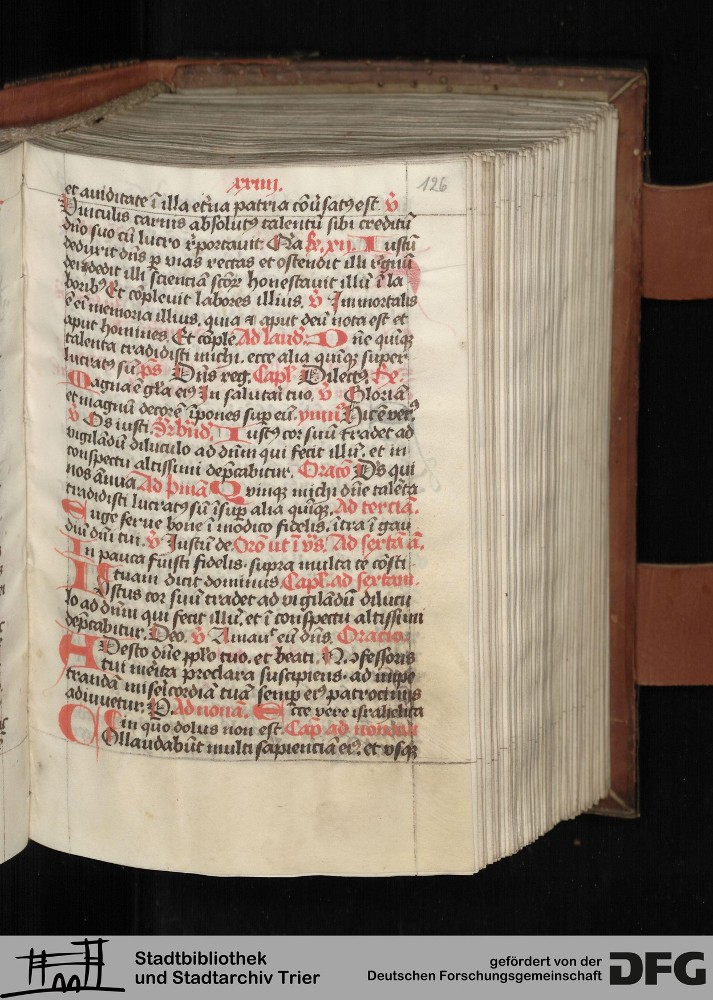 xxiiij.
126
et auiditate ī illa et̄na patria cōūsatꝰ est. ℣
Vinculis carnis absolutꝰ talentū sibi creditū
dn̄o suo cū lucro r̄portauit. Iustū
deduxit dn̄s ꝑ vias rectas et ostendit illi r̄gnū
dei ⁊ dedit illi scienciā sc̄oꝝ honestauit illū ī la
boribꝰ Et cōpleuit labores illius. ℣ Inmortalis
ē eī memoria illius, quia ⁊ aput deū nota est et
aput homines. Et cōple Ad laud. Dn̄e quiqꝫ
talenta tradidisti michi, ecce alia quiqꝫ super
lucratꝰ sū ps Dn̄s reg. Capl̄ Dilectꝰ
Magna ē gl̄a eiꝰ In salutaī tuo. ℣ Gloriā
et magnū decorē īpones sup eū. ymnꝰ Hic ē verꝰ
℣ Os iusti. Iustꝰ cor suū tradet ad
vigilādū diluculo ad dūm qui fecit illū. et in
conspectu altissimi dep̄cabitur. Oracō Ds qui
nos ānua Ad p̄mā Quinqꝫ michi dn̄e talēta
tradidisti lucratꝰ sū īsuꝑ alia quiqꝫ. Ad terciā.
Euge serue bone ī modico fidelis, ītra ī gau
diū dn̄i tui. ℣ Iustū de Orō ut ī
In pauca fuisti fidelis, supra multa te cōsti
tuam dicit dominus. Capl̄ ad sextam.
Iustus cor suū tradet ad vigilādū dilucu
lo ad dūm qui fecit illū, et ī conspectu altissimi
dep̄cabitur. Deo. ℣ Amauᵗ eū dn̄s. Oracio
Adesto dn̄e ppl̄o tuo. et beati. N. ↄfessoris
tui merita preclara suscipiens. ad inpe
trandā misēicordiā tuā semꝑ eiꝰ patrociniis
adiuuetur. P. Ad nonā. Ecce vere israhelita
in quo dolus non est. Cap̄ ad nonam
Collaudabūt multi sapienciā eiꝰ. et vsqꝫ
Stadtbibliothek
und Stadtarchiv Trier
gefördert von der
Deutschen Forschungsgemeinschaft
DFG